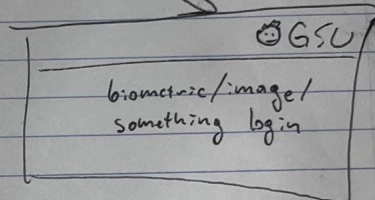 GSU
biometric/image/
something login